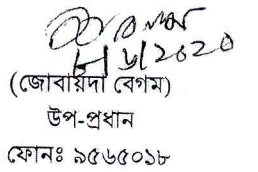 ৮/৬/2020
(জোবায়দা বেগম)
উপ-প্রধান
ফোনঃ ৯৫৬৫০১৮